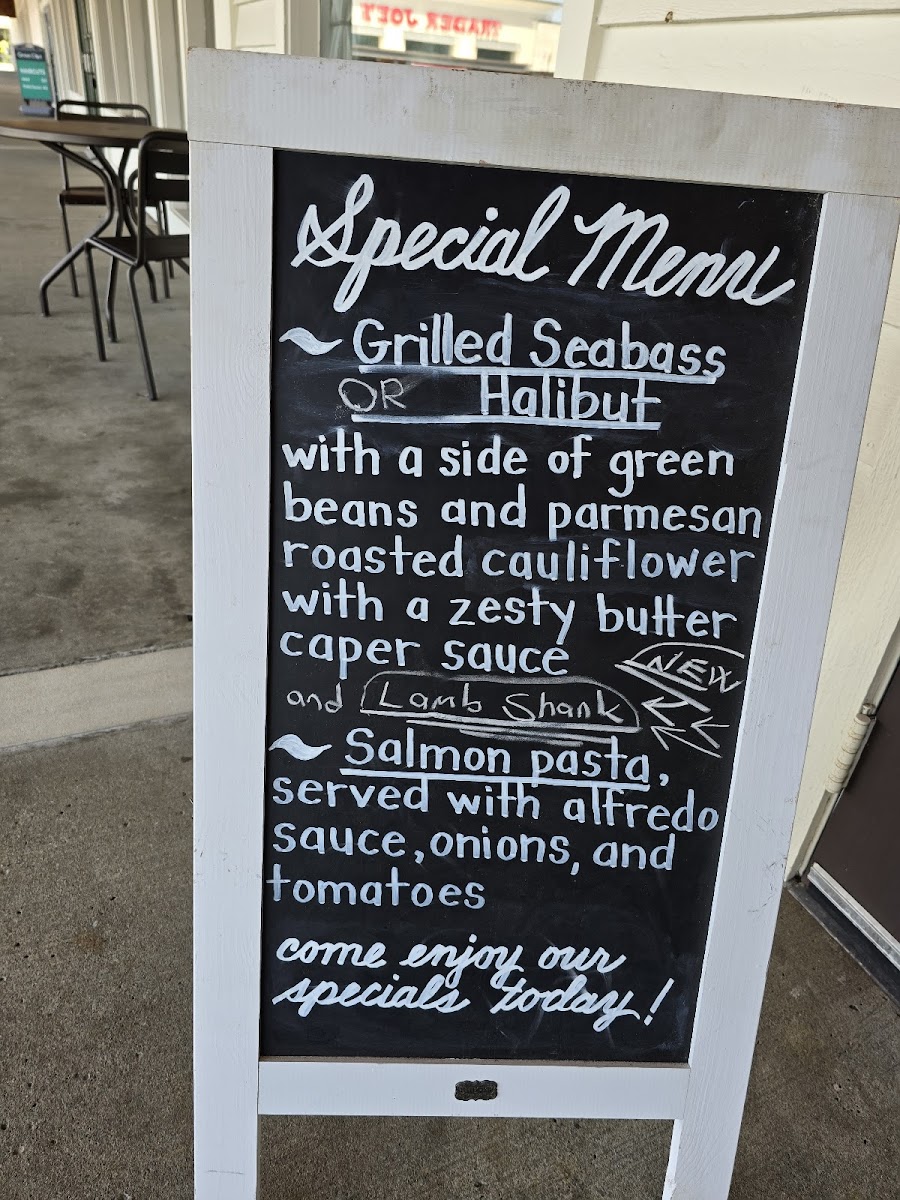 TRADER JOE'S
HAIRCUTS
Special Menu
~ Grilled Seabass
OR Halibut
with a side of green
beans and parmesan
roasted cauliflower
with a zesty butter
caper sauce
NEW
and Lamb Shank
~ Salmon pasta,
served with alfredo
sauce, onions, and
tomatoes
come enjoy our
specials today!